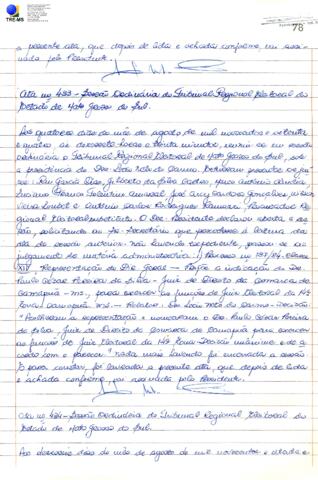 TRE-MS
78
a presente ata, que depois de lida e achada conforme, vai assi-
nada pelo Presidente.
Ata nº 433 - Sessão Ordinária do Tribunal Regional Eleitoral do
Estado de Mato Grosso do Sul.
Aos quatorze dias do mês de agosto de mil novecentos e oitenta
e quatro, às dezessete horas e trinta minutos, reuniu-se em sessão
ordinária o Tribunal Regional Eleitoral de Mato Grosso do Sul, sob
a presidência do Des.
Rui Garcia Dias, Gilberto da Silva Castro,
gional Eleitoral substituto. O Des. Presidente declarou aberta a ses-
são, solicitando ao Sr. Secretário que procedesse à leitura da
ata da sessão anterior. Não havendo expediente, passou-se ao
julgamento de matéria administrativa: 1) Processo nº 137/84, classe
XIV Representação do Des. - Propõe a indicação do Dr.
Paulo César Pereira da Silva - Juiz de Direito da comarca de
Camapuã - MS., para exercer as funções de Juiz Eleitoral da
Zona/Camapuã - MS. - Relator:
"Acolheram a representação e nomearam o Dr. Paulo César Pereira
da Silva, Juiz de Direito da comarca de Camapuã para exercer
as funções de Juiz Eleitoral da Zona. Decisão unânime e de a-
cordo com o parecer." Nada mais havendo foi encerrada a sessão.
E para constar, foi lavrada a presente ata, que depois de lida
e achada conforme, vai assinada pelo Presidente.
Ata nº 434 - Sessão Ordinária do Tribunal Regional Eleitoral do
Estado de Mato Grosso do Sul.
Aos dias do mês de agosto de mil novecentos e oitenta e